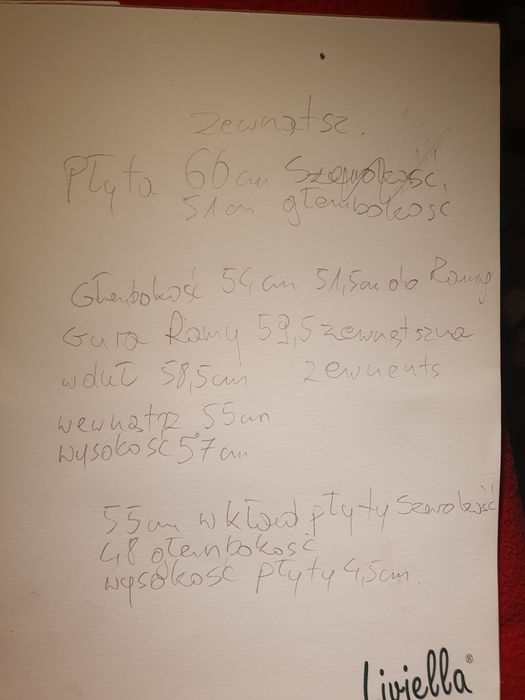 zewnątsz.
Płyta 60cm Szerokość,
51cm głembokość
Głembokość 54cm 51,5cm do Ramy
Gura Ramy 59,5 zewnątszna
wduł 58,5cm zewnents
wewnątrz 55cm
wysokość 57cm
55cm wkład płyty Szerokość
48 głembokość
wysokość płyty 4,5cm.
Liviella®